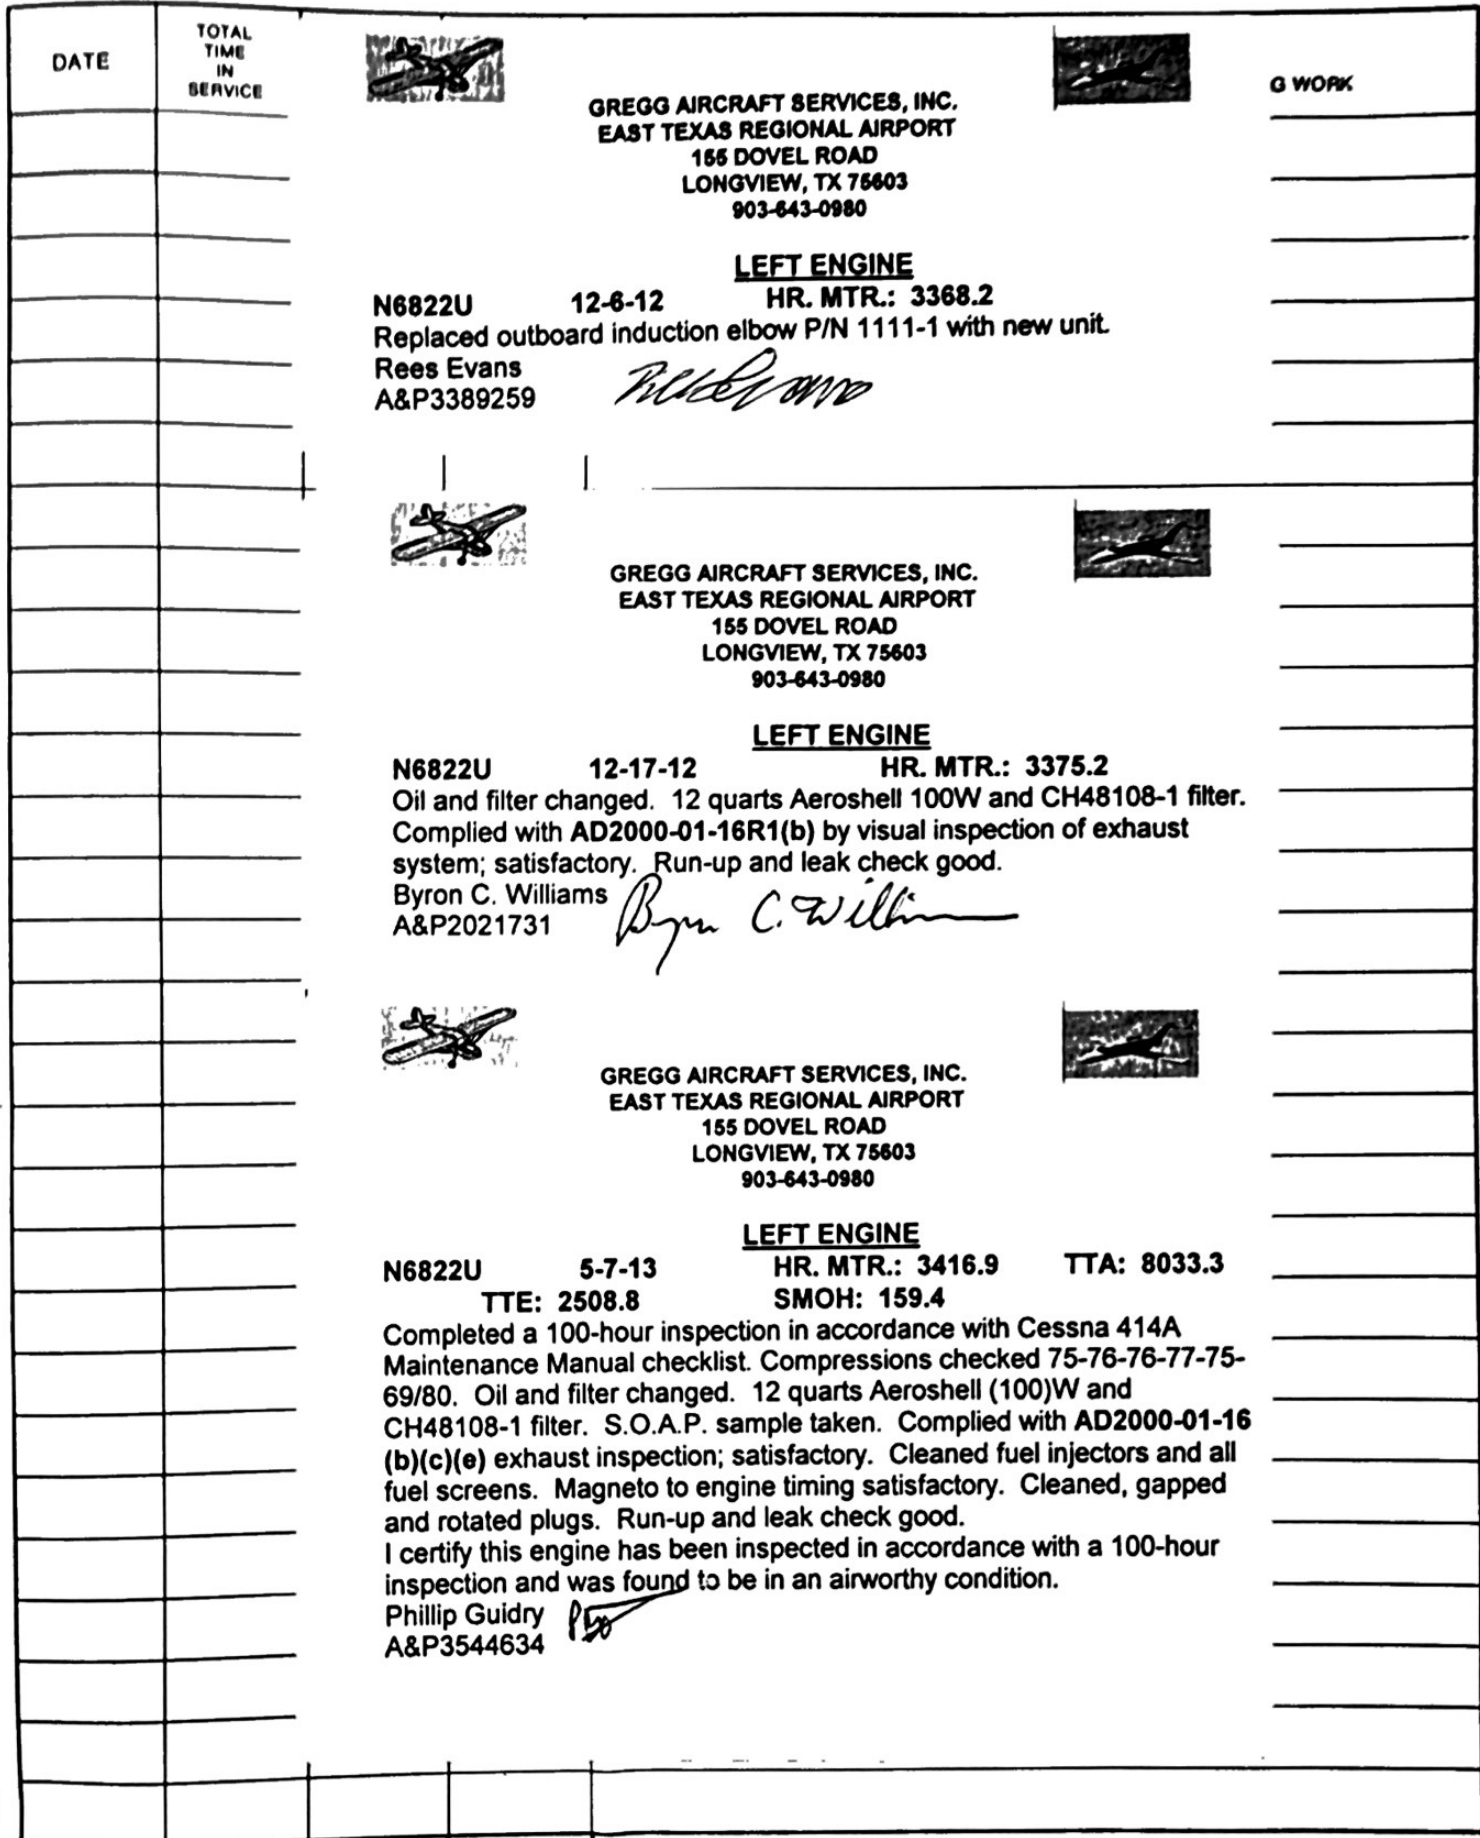 DATE
TOTAL
TIME
IN
SERVICE
G WORK
GREGG AIRCRAFT SERVICES, INC.
EAST TEXAS REGIONAL AIRPORT
155 DOVEL ROAD
LONGVIEW, TX 75603
903-643-0980
LEFT ENGINE
N6822U 12-6-12 HR. MTR.: 3368.2
Replaced outboard induction elbow P/N 1111-1 with new unit.
Rees Evans
A&P3389259
GREGG AIRCRAFT SERVICES, INC.
EAST TEXAS REGIONAL AIRPORT
155 DOVEL ROAD
LONGVIEW, TX 75603
903-643-0980
LEFT ENGINE
N6822U 12-17-12 HR. MTR.: 3375.2
Oil and filter changed. 12 quarts Aeroshell 100W and CH48108-1 filter.
Complied with AD2000-01-16R1(b) by visual inspection of exhaust
system; satisfactory. Run-up and leak check good.
Byron C. Williams
A&P2021731 Byron C. Williams
GREGG AIRCRAFT SERVICES, INC.
EAST TEXAS REGIONAL AIRPORT
155 DOVEL ROAD
LONGVIEW, TX 75603
903-643-0980
LEFT ENGINE
N6822U 5-7-13 HR. MTR.: 3416.9 TTA: 8033.3
TTE: 2508.8 SMOH: 159.4
Completed a 100-hour inspection in accordance with Cessna 414A
Maintenance Manual checklist. Compressions checked 75-76-76-77-75-
69/80. Oil and filter changed. 12 quarts Aeroshell (100)W and
CH48108-1 filter. S.O.A.P. sample taken. Complied with AD2000-01-16
(b)(c)(e) exhaust inspection; satisfactory. Cleaned fuel injectors and all
fuel screens. Magneto to engine timing satisfactory. Cleaned, gapped
and rotated plugs. Run-up and leak check good.
I certify this engine has been inspected in accordance with a 100-hour
inspection and was found to be in an airworthy condition.
Phillip Guidry
A&P3544634